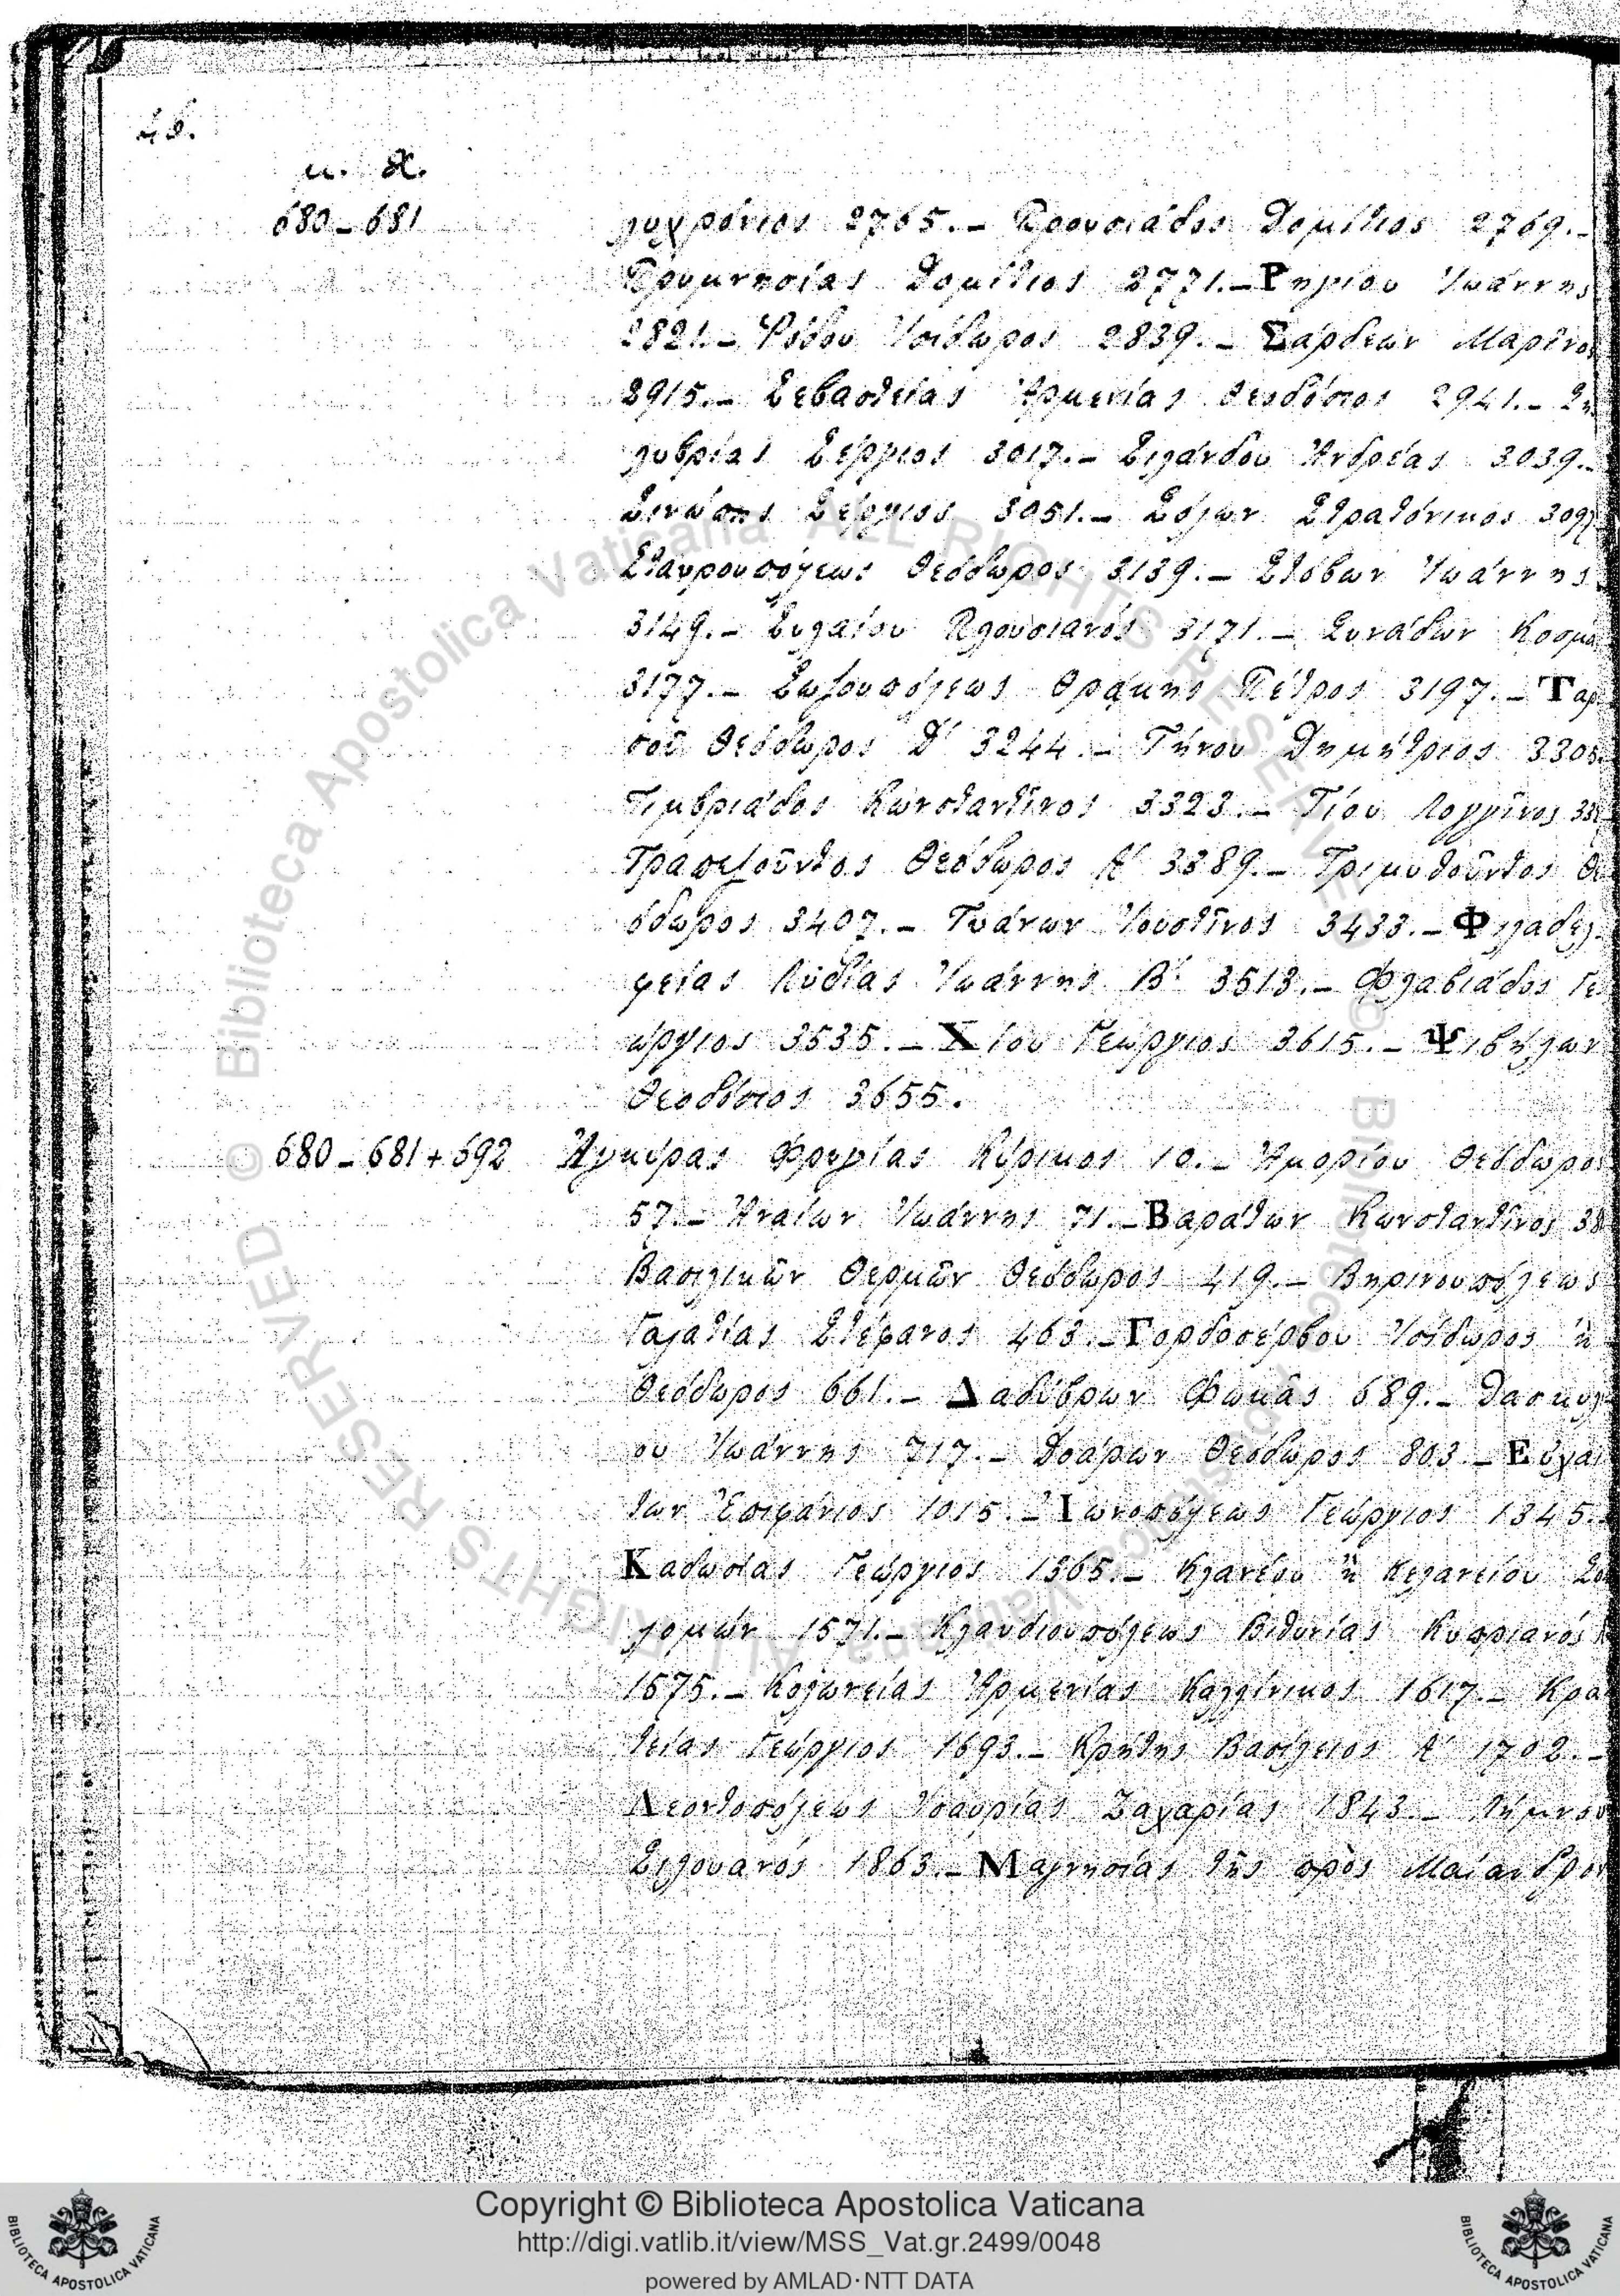 46.
μ. Χ.
680-681 λυχρόνιος 2765.- Προυσιάδος Δομίτιος 2769.-
Πρυμνησίας Δομίτιος 2771.- Ρηγίου Ἰωάννης
2821.- Ῥόδου Ἰσίδωρος 2839.- Σάρδεων Μαρῖνος
2915.- Σεβαστείας Ἀρμενίας Θεοδόσιος 2941.- Ση
λυβρίας Σέργιος 3017.- Σιλάνδου Ἀνδρέας 3039.-
Σινώπης Σέργιος 3051.- Σόλων Στρατόνικος 309
Σταυρουπόλεως Θεόδωρος 3139.- Στόβων Ἰωάννης
3149.- Συλαίου Πλουσιανός 3171.- Συνάδων Κοσμᾶ
3177.- Σωζουπόλεως Θρᾴκης Πέτρος 3197.- Ταρ
σοῦ Θεόδωρος Δ' 3244.- Τήνου Δημήτριος 3305.
Τιμβριάδος Κωνσταντῖνος 3323.- Τίου Λογγῖνος 33
Τραπεζοῦντος Θεόδωρος Α' 3389.- Τριμυθοῦντος Θε
όδωρος 3407.- Τυάνων Ἰουστῖνος 3433.- Φιλαδελ
φείας Λυδίας Ἰωάννης Β' 3513.- Φλαβιάδος Γε
ώργιος 3535.- Χίου Γεώργιος 3615.- Ψιβήλων
Θεοδόσιος 3655.
680-681+692 Ἀγκύρας Φρυγίας Κύρικος 10.- Ἀμορίου Θεόδωρος
57.- Ἀναίων Ἰωάννης 71.- Βαράτων Κωνσταντῖνος 38
Βασιλικῶν Θερμῶν Θεόδωρος 419.- Βηρινουπόλεως
Γαλατίας Στέφανος 463.- Γορδοσέρβου Ἰσίδωρος ἢ
Θεόδωρος 661.- Δαδύβρων Φωκᾶς 689.- Δασκυλ
ου Ἰωάννης 717.- Δοάρων Θεόδωρος 803.- Εὐχαι
των Ἐπιφάνιος 1015.- Ἰωνοπόλεως Γεώργιος 1345.
Καδωσίας Γεώργιος 1365.- Κλανέου ἢ Κελανείου Σο
λομών 1571.- Κλαυδιουπόλεως Βιθυνίας Κυπριανός
1575.- Κολωνείας Ἀρμενίας Καλλίνικος 1617.- Κρα
τείας Γεώργιος 1693.- Κρήτης Βασίλειος Α' 1702.-
Λεοντοπόλεως Ἰσαυρίας Ζαχαρίας 1843.- Λήμνου
Σιλουανός 1863.- Μαγνησίας τῆς πρὸς Μαίανδρον
Copyright © Biblioteca Apostolica Vaticana
http://digi.vatlib.it/view/MSS_Vat.gr.2499/0048
powered by AMLAD·NTT DATA
BIBLIOTECA APOSTOLICA VATICANA
BIBLIOTECA APOSTOLICA VATICANA